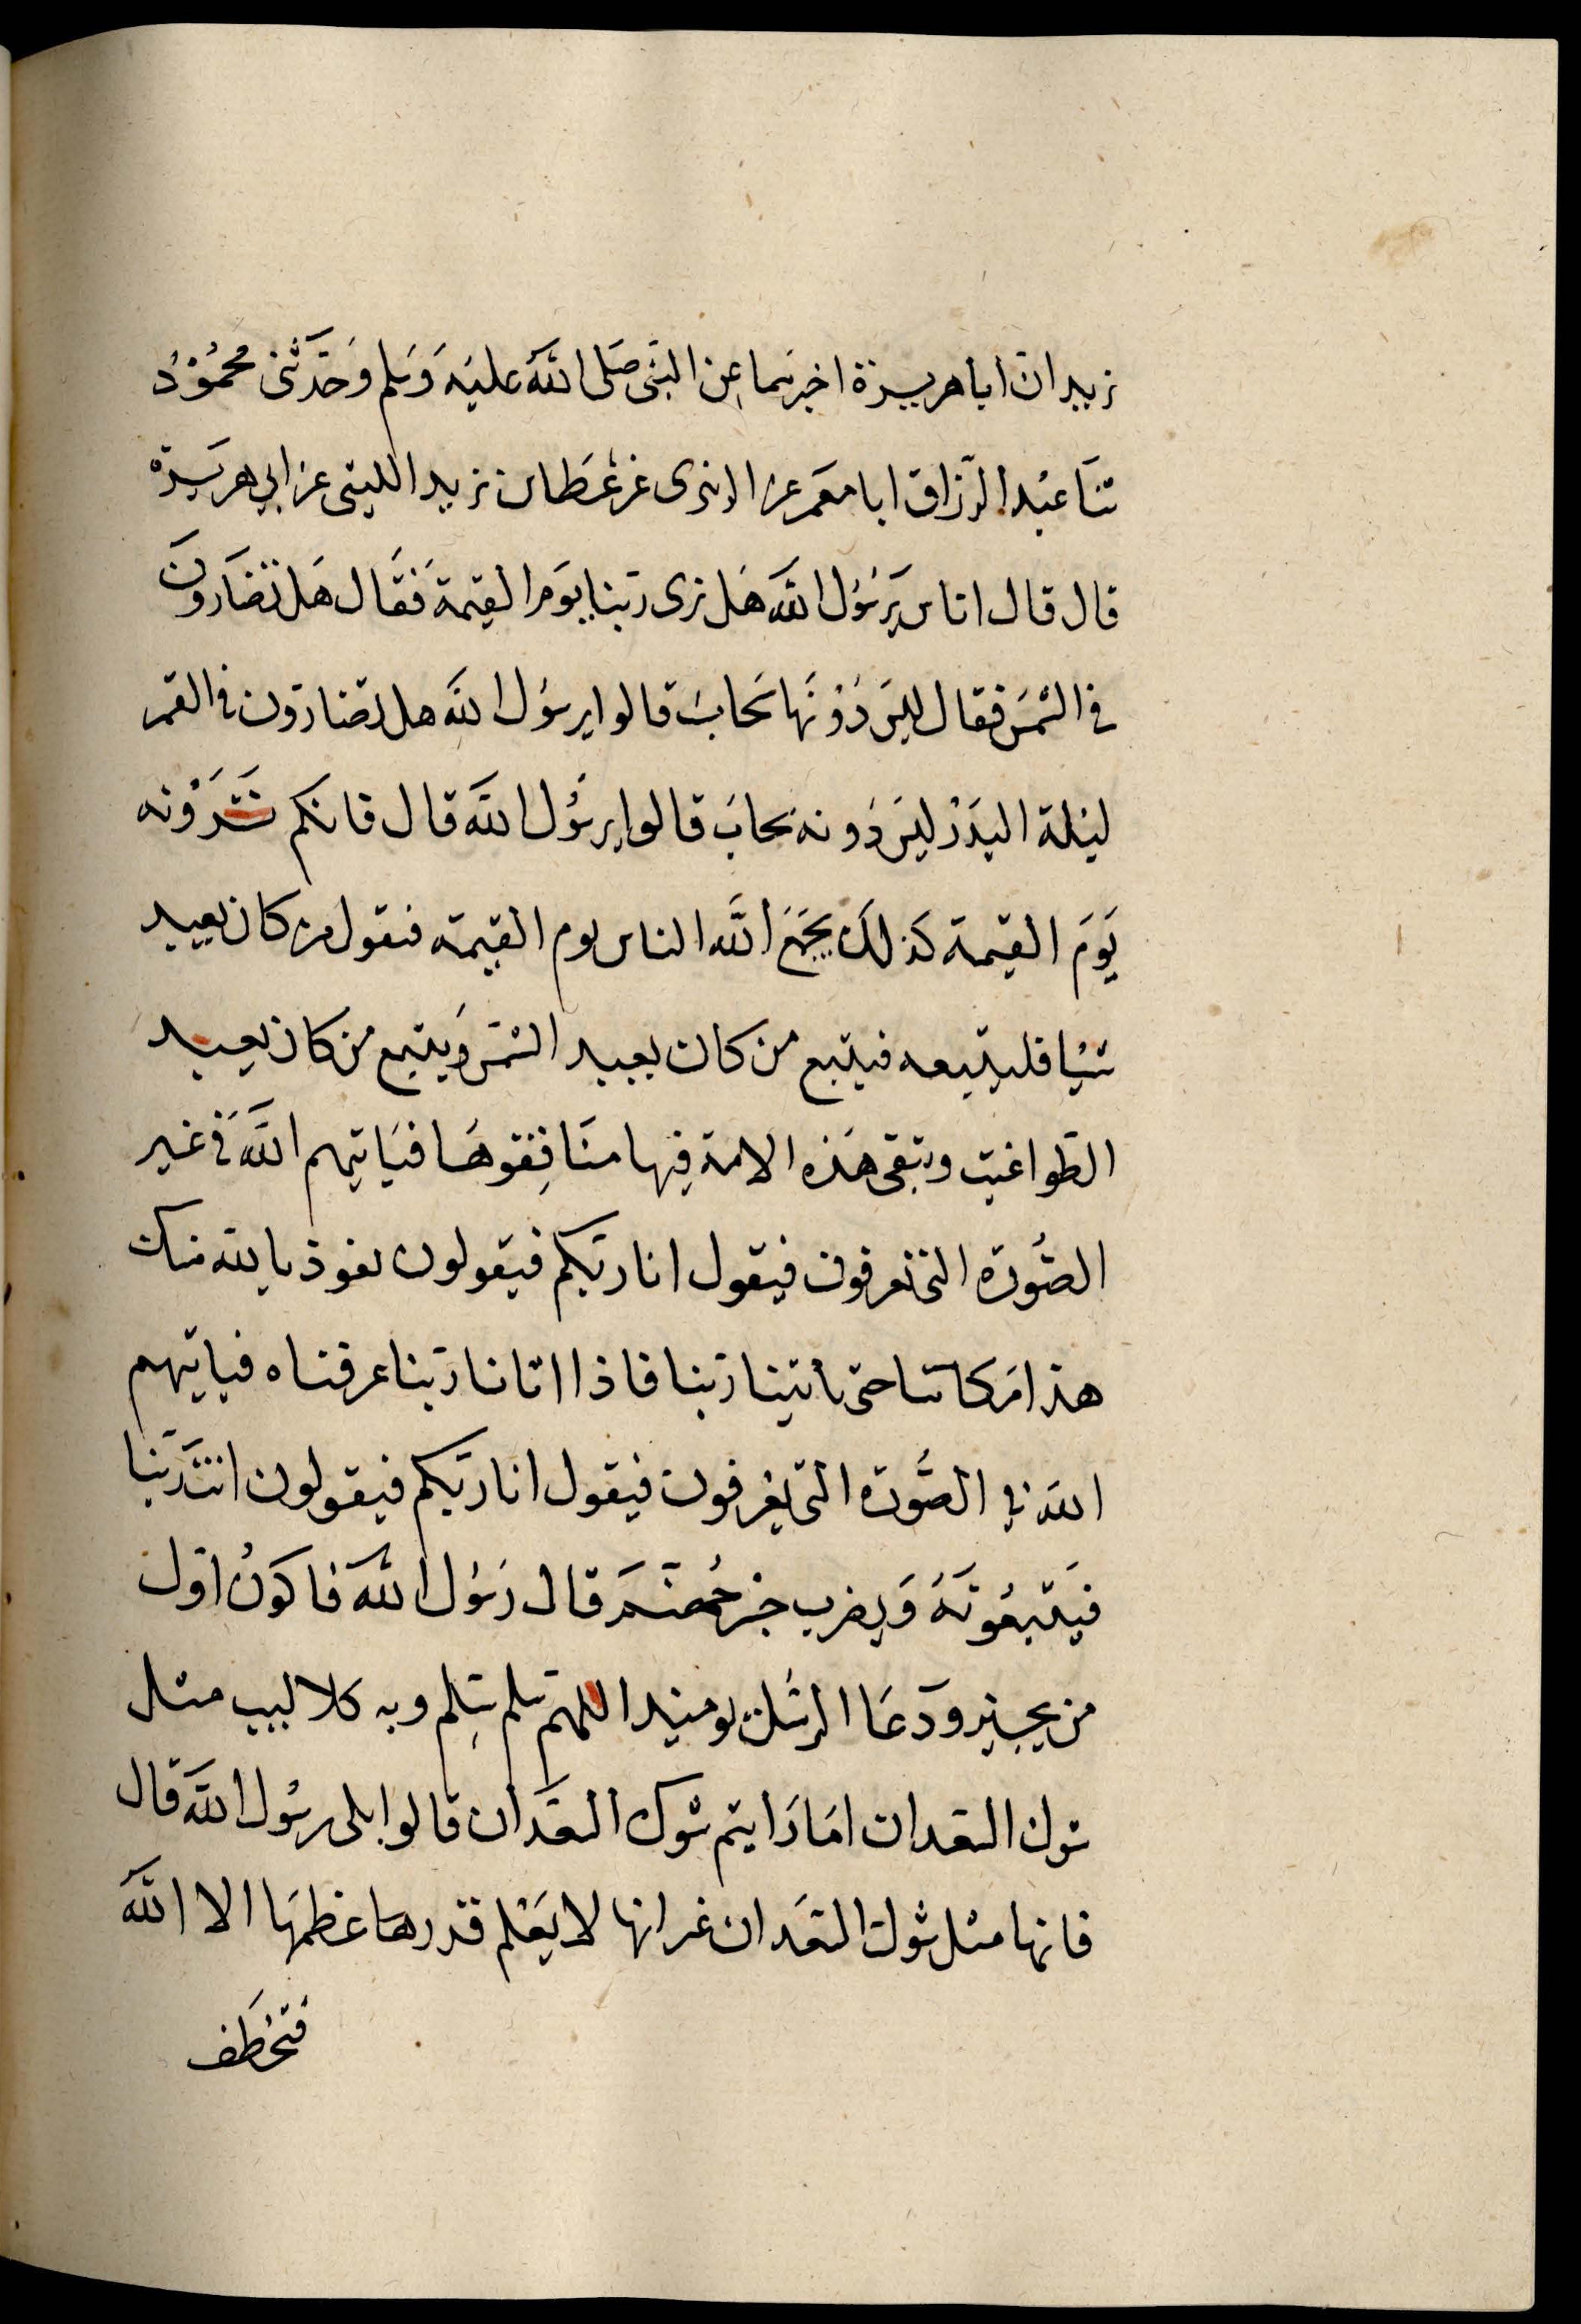 زيد ان ابا هريرة اخبرهما عن النبى صَلى اللَّهُ عليْه وَسَلم وَحَدّثنى محمُوْدُ
ثنَا عبْد الرّزاق ابا معمَر عن الزهرى عن عَطا بن زيد الليثى عن ابي هرَيرَة
قال قال اناس يَرسُوْل اللَّه هَل نرى ربّنا يوَم القيمة فَقَال هَل تضَارّونَ
فى الشمْس فقال ليسَ دُوْنَها سَحابُ قالوا يرسوُل اللَّه هل تضارّون فى القمر
ليْلة البَدْر ليسَ دُونه سَحابَ قالوا يرسُول اللَّه قال فانكم تَرَوْنه
يَوَم القيمة كذلكَ يَجمَعَ اللَّه الناس يوم القيمة فيقول من كان يعبد
شيْيا فليتبعه فيتبع من كان يعبد الشمْسَ وَيتبع من كان يعبد
الطّواغيت وتبقى هَذه الامة فيها منَافِقوهَا فيَاتيهم اللَّه فَى غير
الصُّورَة التى تعرفون فيقول انا ربّكم فيقولون نعوذ بالله منك
هذا مَكاننا حتى ياتينا رَبنا فاذا اتانا ربّنا عرفناه فياتيهم
اللَه فى الصُّورَة التى يعْرفون فيقول انا ربّكم فيقولون انتَ رَبّنا
فيَتبعُونَهُ وَيضرب جسْر جُهنّمَ قال رَسُول اللَّه فاكوَنُ اوّل
من يجيز وَدعَا الرسُل يوميذ اللهمّ سَلم سَلم وبه كلاليب مثل
شوك السّعدان امَا رَايتم شوك السّعدَان قالوا بلى يرسُول اللَّه قال
فانها مثل شوك السّعَدان غير انها لا يَعْلم قدرهَا عظمَها الا اللَّهَ
فتخْطَف